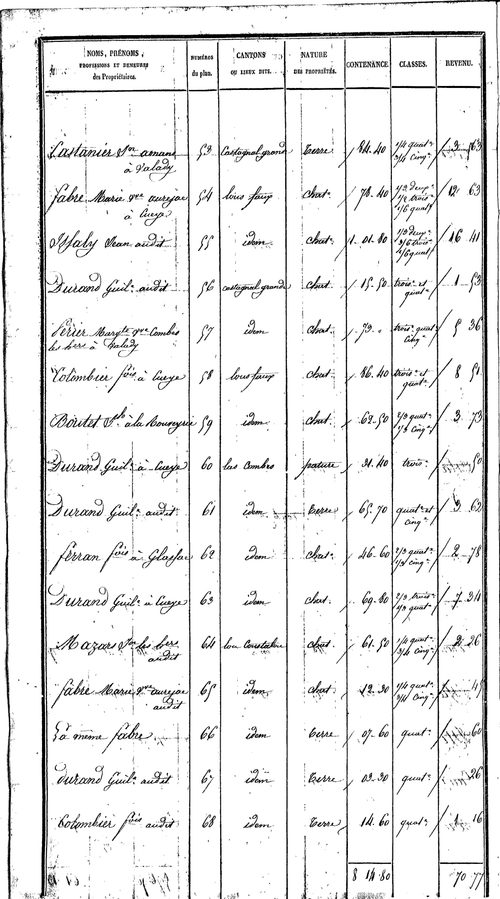 NOMS, PRÉNOMS, PROFESSIONS ET DEMEURES des Propriétaires. NUMÉROS du plan. CANTONS OU LIEUX DITS. NATURE DES PROPRIÉTÉS. CONTENANCE CLASSES. REVENU.
Castanier amans à Valady 53 Castagnal grand terre 84.40 1/4 quat. 3/4 cinq. 3 63
fabre Marie vve aurejac à Cueye 54 lous faux chat. 78.40 1/3 deux. 1/2 trois. 1/6 quat. 12 63
Issaly Jean audit 55 idem chat. 1.01.80 1/3 deux. 3/6 trois. 1/6 quat. 16 41
Durand Guil. audit 56 castagnal grand chat. 15.50 trois. et quat. 1 53
Périer Marg.te vve Combes les bers à Valady 57 idem chat. 73. trois. quat. cinq. 5 36
Colombier fois à Cueye 58 lous faux chat. 86.40 trois. et quat. 8 51
Boutet à la Bouveyrie 59 idem chat. 62.50 2/3 quat. 1/3 cinq. 3 73
Durand Guil. à Cueye 60 las Combes pature 31.40 trois. 50
Durand Guil. audit 61 idem terre 65.70 quat. et cinq. 3 62
ferran fois à Glassac 62 idem chat. 46.60 2/3 quat. 1/3 cinq. 2 78
Durand Guil. à Cueye 63 idem chat. 69.80 2/3 trois. 1/3 quat. 7 34
Mazars les bers audit 64 lou chat. 61.50 1/4 quat. 3/4 cinq. 2 26
fabre Marie vve aurejac audit 65 idem chat. 12.30 1/4 quat. 3/4 cinq. 45
La même fabre 66 idem terre 07.60 quat. 60
durand Guil. audit 67 idem terre 03.30 quat. 26
Colombier fois audit 68 idem terre 14.60 quat. 1 16
8 14.80 70 77